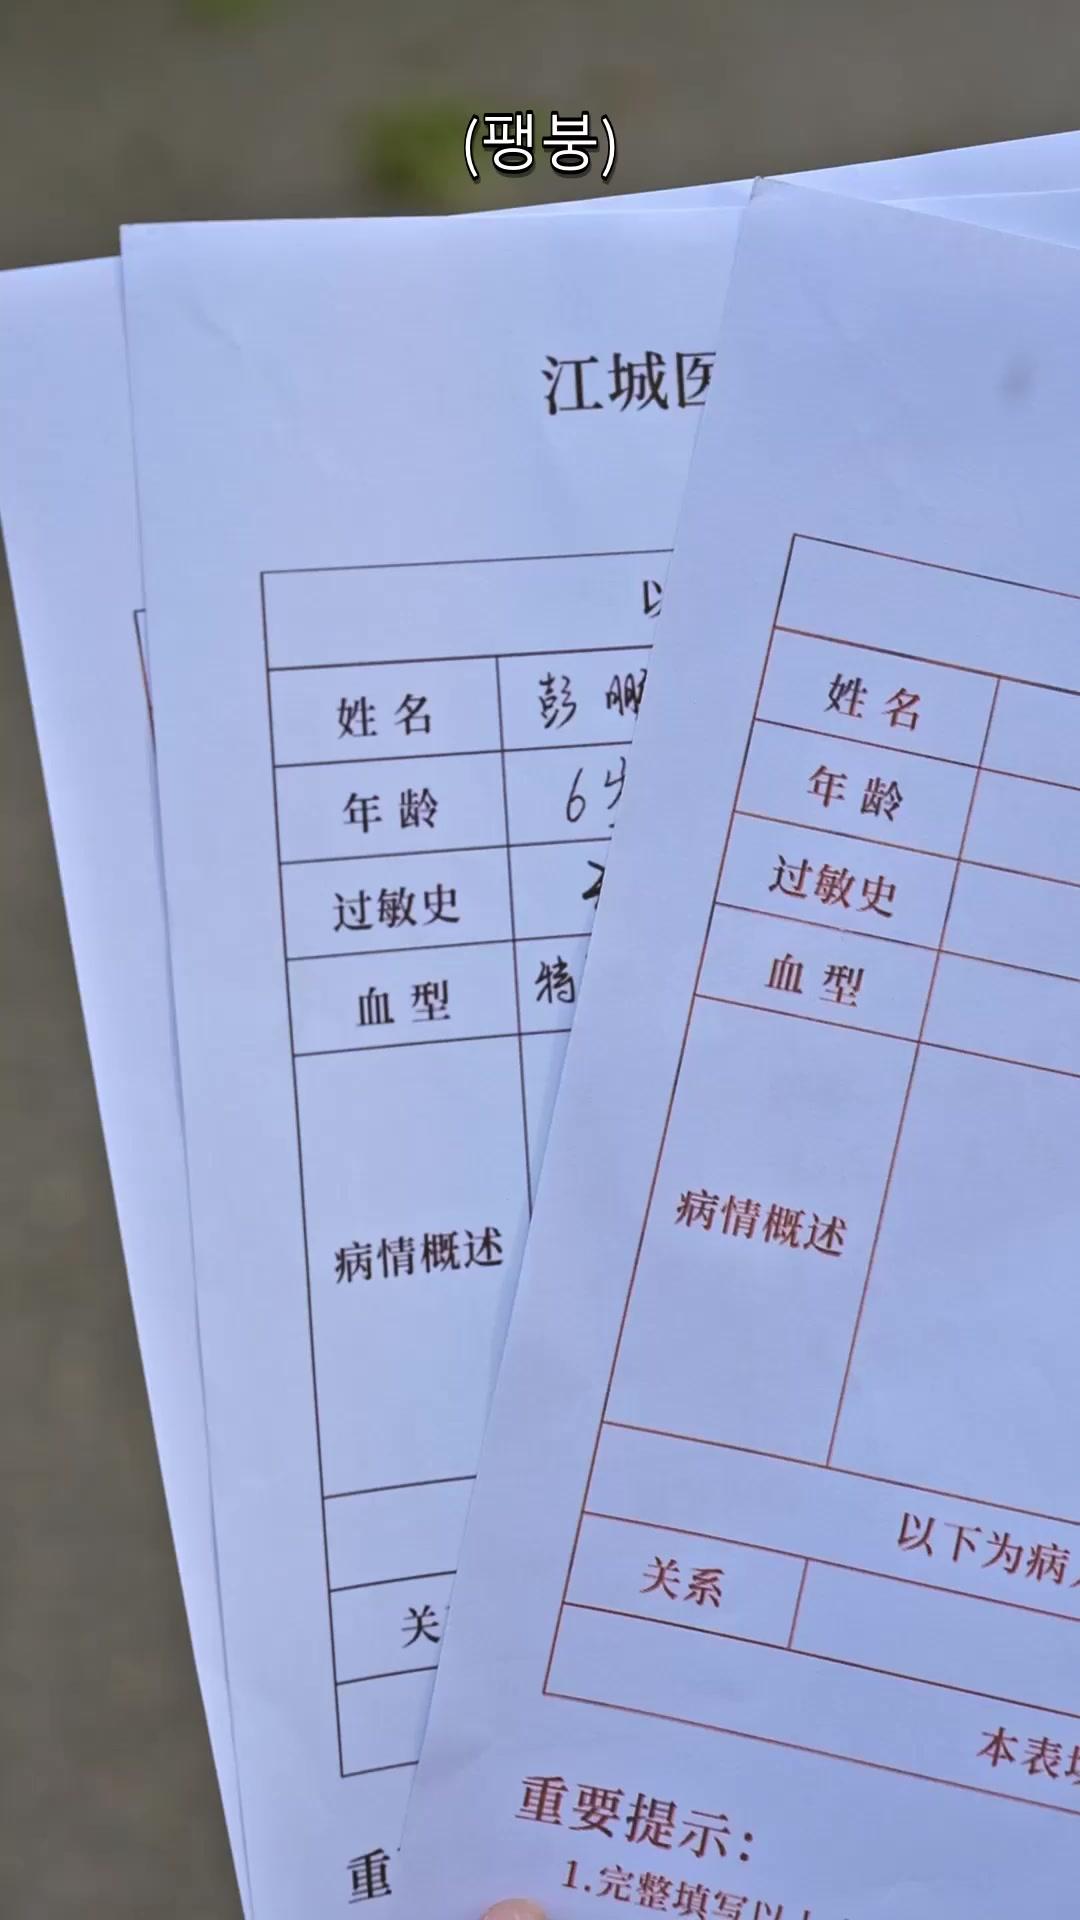 (팽붕)
江城医
以
姓名
彭鹏
年龄
6岁
过敏史
血型
特
病情概述
关
重
姓名
年龄
过敏史
血型
病情概述
以下为病
关系
本表填
重要提示：
1.完整填写以上